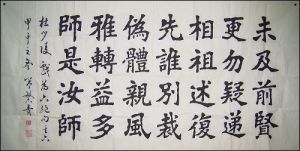 未及前賢
更勿疑遞
相祖述復
先誰別裁
偽體親風
雅轉益多
師是汝師
杜少陵戲為六絕句之六
甲申之冬